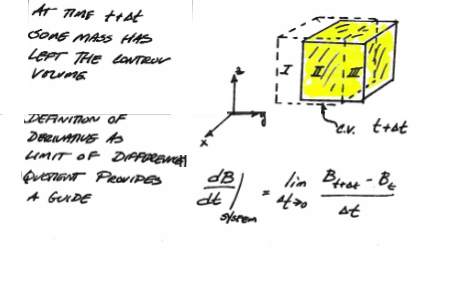 AT TIME t+Δt
SOME MASS HAS
LEFT THE CONTROL
VOLUME
I II III
z
y
x
c.v. t+Δt
DEFINITION OF
DERIVATIVE AS
LIMIT OF DIFFERENCE
QUOTIENT PROVIDES
A GUIDE
dB/dt | SYSTEM = lim Δt→0 (B t+Δt - B t)/Δt